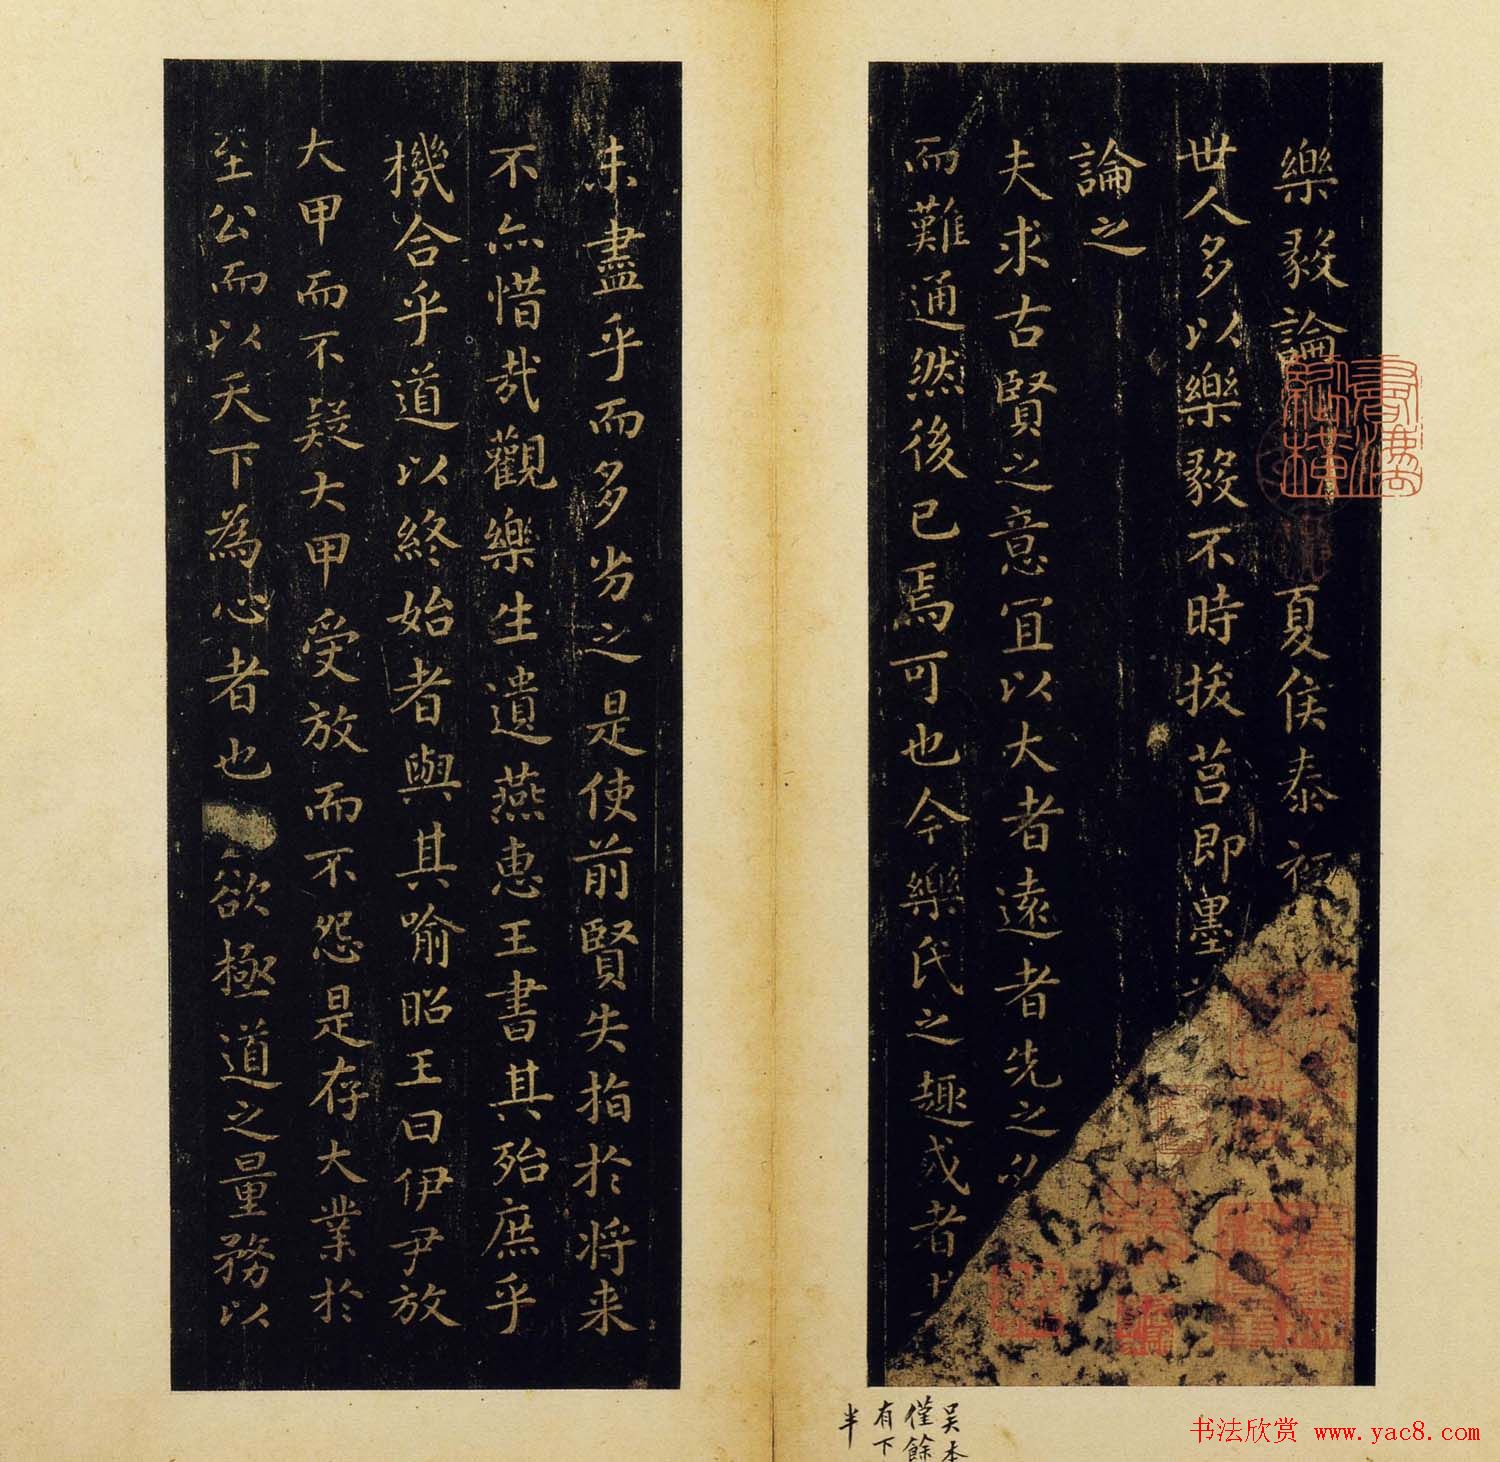 樂毅論 夏侯泰初
世人多以樂毅不時拔莒即墨
論之
夫求古賢之意宜以大者遠者先之必
而難通然後已焉可也今樂氏之趣或者
未盡乎而多劣之是使前賢失指於將来
不亦惜哉觀樂生遺燕惠王書其殆庶乎
機合乎道以終始者與其喻昭王曰伊尹放
大甲而不疑大甲受放而不怨是存大業於
至公而以天下為心者也 欲極道之量務以
吴本
僅餘
有下
半
书法欣赏 www.yac8.com